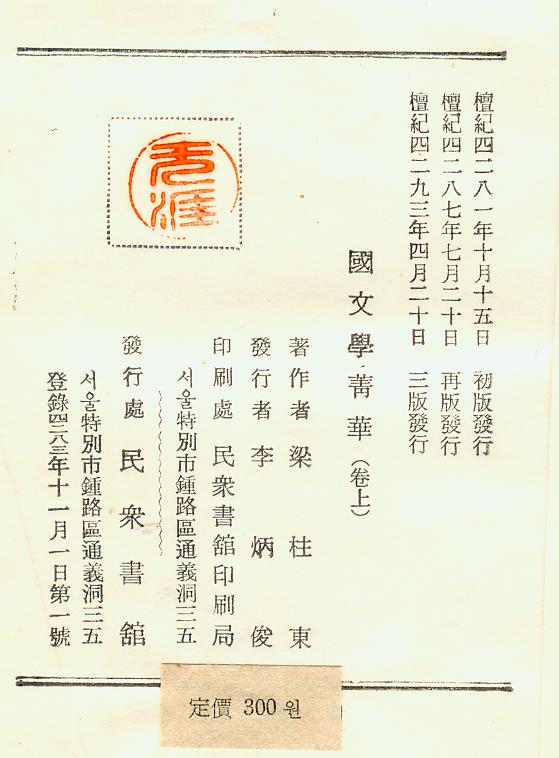 檀紀四二八一年十月十五日 初版發行
檀紀四二八七年七月二十日 再版發行
檀紀四二九三年四月二十日 三版發行
國文學菁華(卷上)
著作者 梁柱東
發行者 李炳俊
印刷處 民衆書舘印刷局
서울特別市鍾路區通義洞三五
發行處 民衆書舘
서울特別市鍾路區通義洞三五
登錄四二八三年十一月一日第一號
无涯
定價 300 원